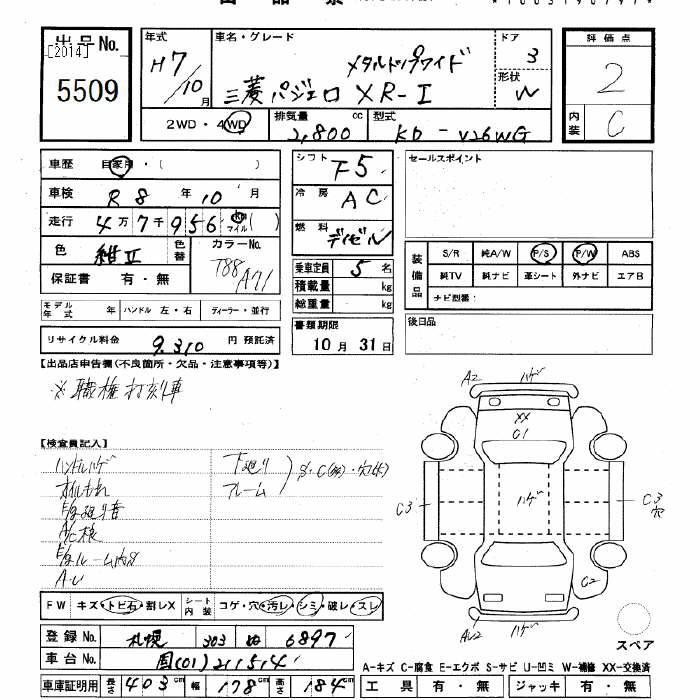 出品No.
[2014]
5509
年式
H7/10月
車名・グレード
メタルトップワイド
三菱 パジェロ XR-I
ドア
3
形状
W
評価点
2
内装
C
2WD・4WD
排気量
2,800 cc
型式
KD-V26WG
車歴 自家用・( )
車検 R8年10月
走行 4万7千956 km マイル ( )
色 紺II
色替
カラーNo.
T88
A71
保証書 有・無
シフト F5
冷房 AC
燃料 ディゼル
乗車定員 5名
積載量 kg
総重量 kg
書類期限
10月31日
セールスポイント
装備品
S/R 純A/W P/S P/W ABS
純TV 純ナビ 革シート 外ナビ エアB
ナビ型番:
後日品
モデル年式 年 ハンドル 左・右 ディーラー・並行
リサイクル料金 9,310 円 預託済
【出品店申告欄(不良箇所・欠品・注意事項等)】
※職権打刻車
【検査員記入】
ハンドルハゲ
オイルもれ
下廻り
フレーム
A2 ハゲ
XX
C1
C3 ハゲ C3
穴
C2
ハゲ
FW キズ・トビ石・割レX シート内装 コゲ・穴・汚レ・シミ・破レ・スレ
登録No. 札幌 303 6897
車台No. 国(01)211514
車庫証明用 長さ 403cm 幅 178cm 高さ 184cm
スペア
A-キズ C-腐食 E-エクボ S-サビ U-凹ミ W-補修 XX-交換済
工具 有・無 ジャッキ 有・無